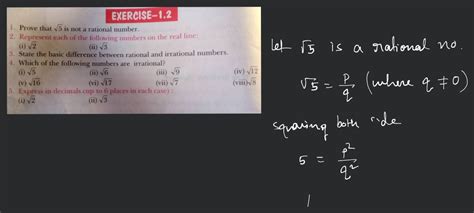 EXERCISE–1.2
1. Prove that √5 is not a rational number.
2. Represent each of the following numbers on the real line:
(i) √2 (ii) √3
3. State the basic difference between rational and irrational numbers.
4. Which of the following numbers are irrational?
(i) √5 (ii) √6 (iii) √9 (iv) √12
(v) √16 (vi) √17 (vii) √7 (viii) √8
5. Express in decimals (up to 6 places in each case):
(i) √2 (ii) √3
let √5 is a rational no.
√5 = p/q (where q ≠ 0)
squaring both side
5 = p²/q²